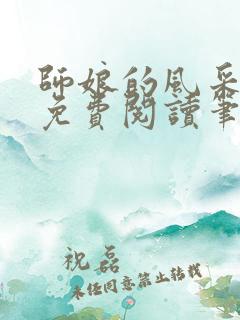 師娘的風采
免費閱讀筆
祝磊
未经同意禁止转载